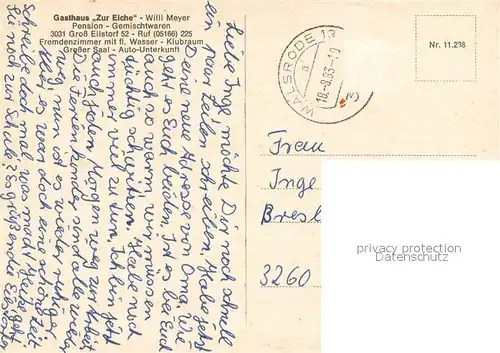 Gasthaus „Zur Eiche" - Willi Meyer
Pension - Gemischtwaren
3031 Groß Eilstorf 52 - Ruf (05166) 225
Fremdenzimmer mit fl. Wasser - Klubraum
Großer Saal - Auto-Unterkunft
Nr. 11.238
WALSRODE 1
a
18.-9.85-10
Liebe Inge, möchte Dir noch schnell
ein paar Zeilen schreiben. Habe jetzt
Deine neue Adresse von Oma. Wie
geht es Euch beiden. Ist es bei Euch
auch so warm, wir müssen
tüchtig schwitzen. Habe auch
immer viel zu tun. Ich bin jetzt
auch jeden Morgen weg zur Arbeit.
Die Ferienkinder sind alle wieder
weg, nun ist es wieder ruhiger
hier. Es war doch eine schöne Zeit.
Schreibe doch mal was macht Heike geht
Sie noch zur Schule? Es grüßen die Eilstorfer
Frau
Inge
Bresl
3260
privacy protection
Datenschutz